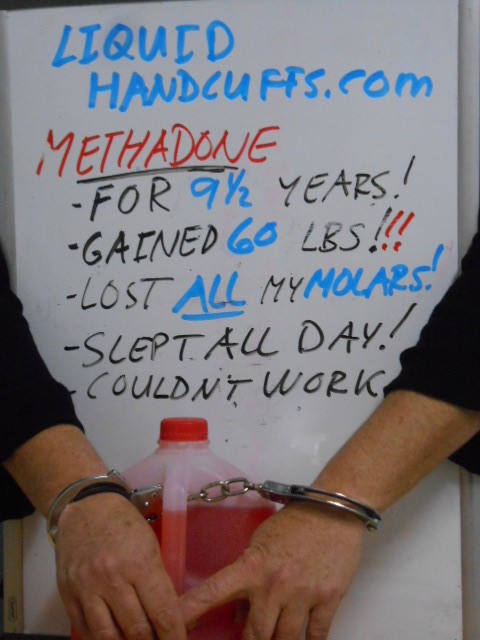 LIQUID
HANDCUFFS.com
METHADONE
-FOR 9½ YEARS!
-GAINED 60 LBS!!!
-LOST ALL MY MOLARS!
-SLEPT ALL DAY!
-COULDN'T WORK